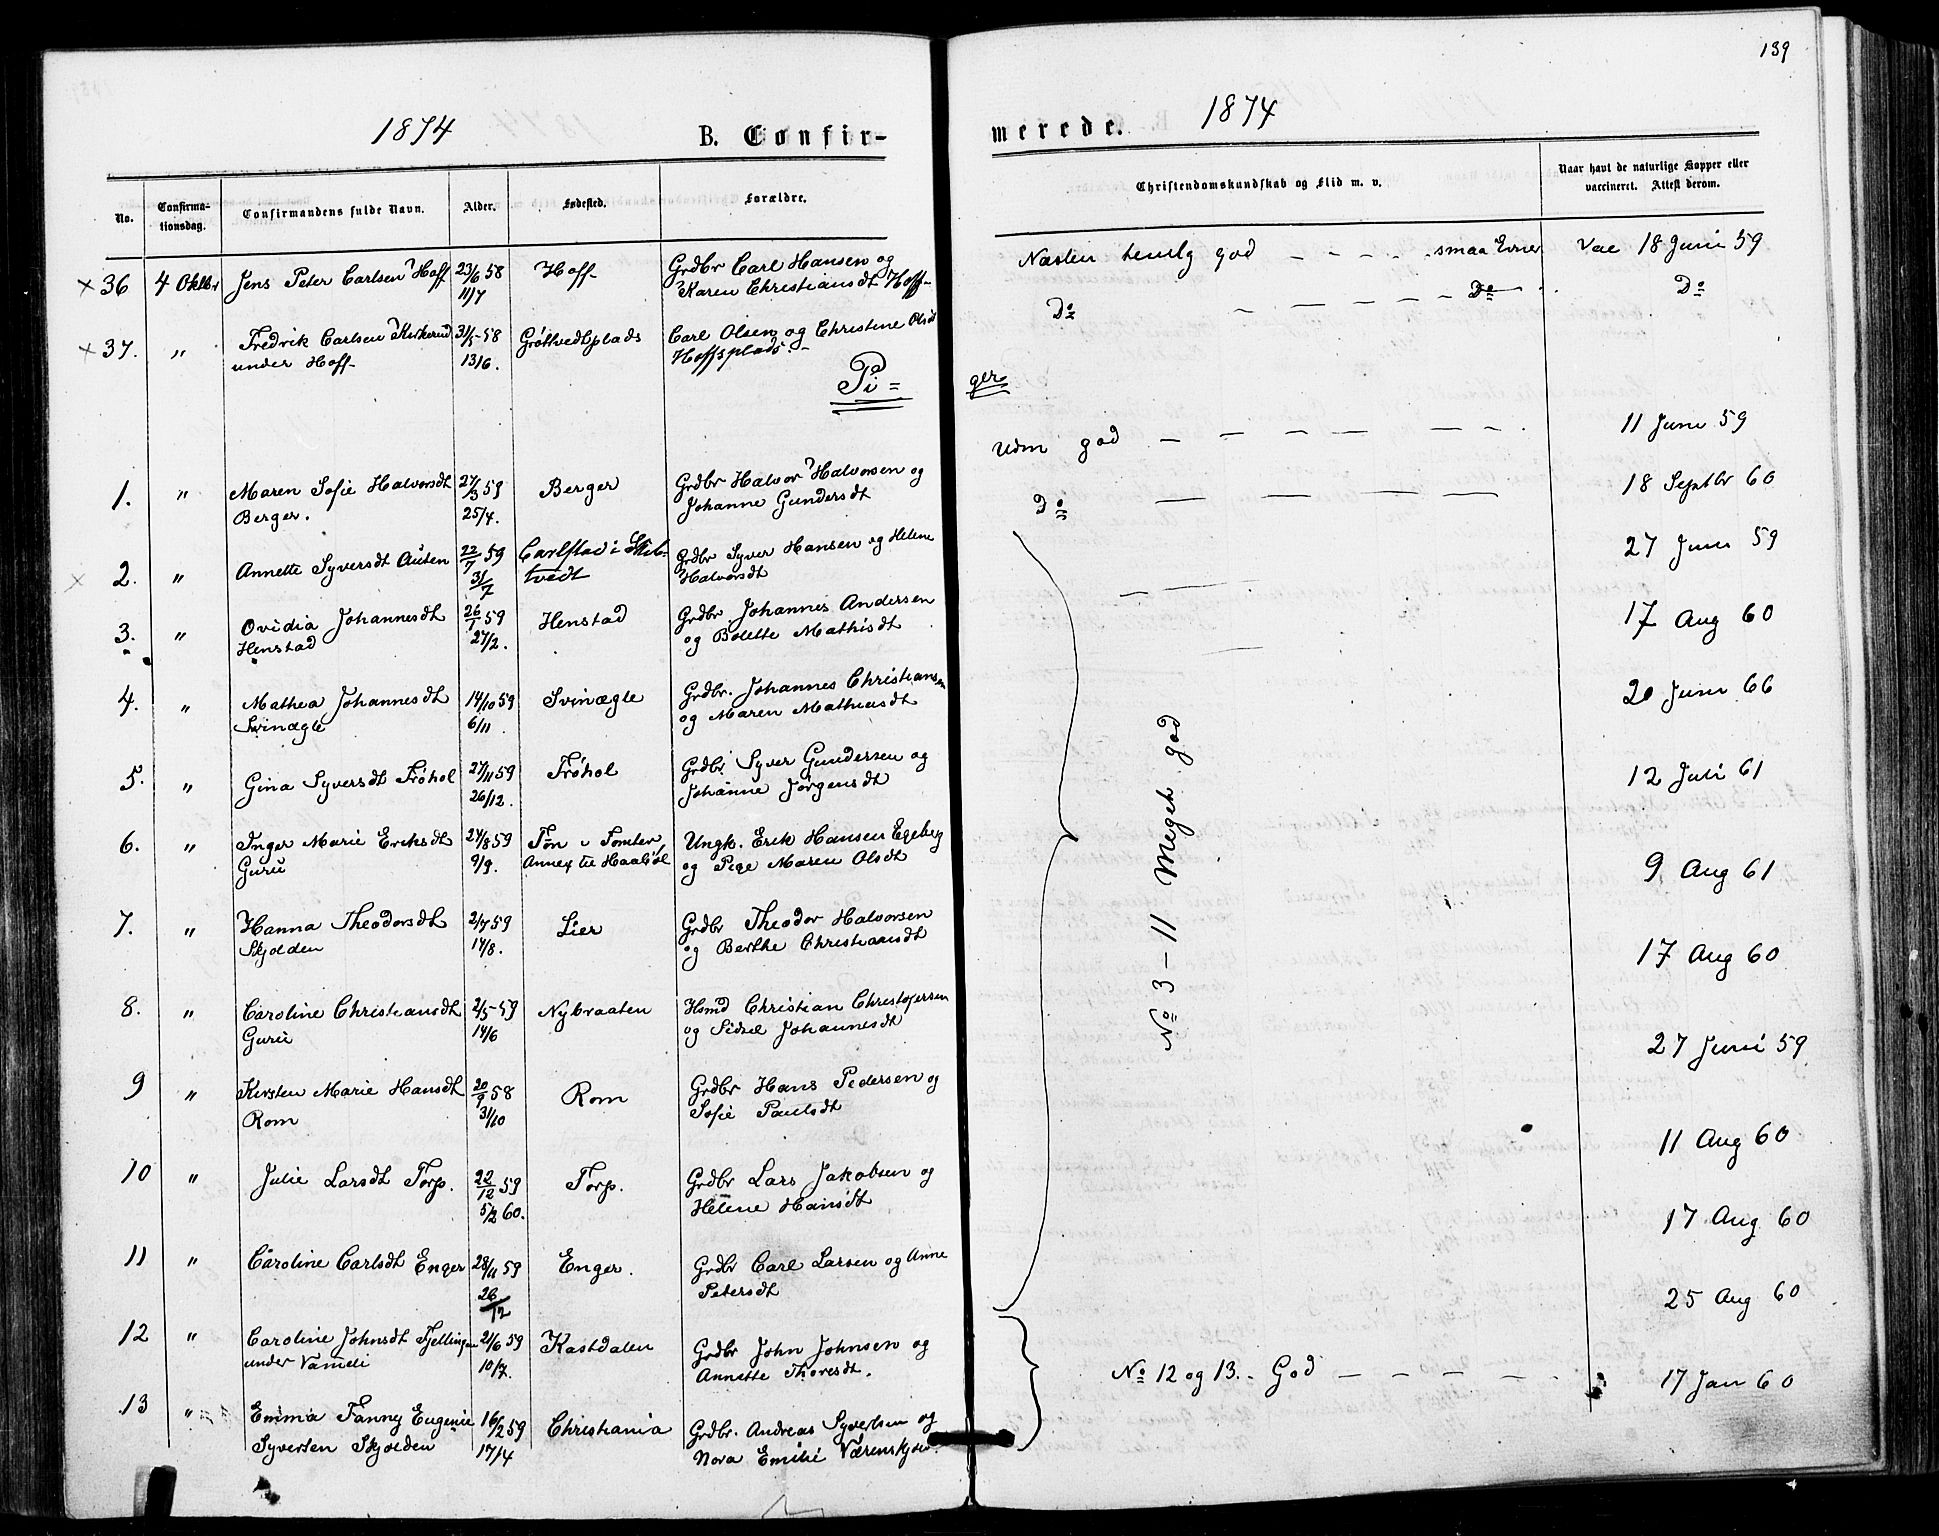 139
1874
B. Confir-
merede.
1874
No.
Confirma-
tionsdag.
Confirmandens fulde Navn.
Alder.
Fødested.
Forældre.
Christendomskundskab og Flid m. v.
Naar havt de naturlige Kopper eller
vaccineret. Attest derom.
× 36 4 Oktbr Jens Peter Carlsen Hoff 23/6 58 Hoff Grdbr Carl Hansen og
11/7 Karen Christiansdt Hoff
Næsten temlg god — — — — smaa Evner Vac 18 Juni 59
× 37. " Fredrik Carlsen Kirkerud 31/5 58 Grøttvedtplads Carl Olsen og Christine Olsdt
under Hoff 13/6. Hoffsplads.
Do — — — — — Do Do
Pi=
ger
Udm god — — — — — — 11 Juni 59
1. " Maren Sofie Halvorsdt 27/3 59 Berger Grdbr Halvor Halvorsen og
Berger. 25/4. Johanne Gundersdt
Do — — — — 18 Septbr 60
2. " Annette Syversdt Auten 22/7 59 Carlstad i Skib-
31/7 tvedt
Grdbr Syver Hansen og Helene
Halvorsdt
27 Juni 59
3. " Ovidia Johannesdt 26/1 59 Henstad Grdbr Johannes Andersen
Henstad 27/2. og Bolette Mathisdt
17 Aug 60
4. " Mathea Johannesdt 14/10 59 Svinægle Grdbr. Johannes Christiansen
Svinægle 6/11 og Maren Mathiasdt
20 Juni 66
5. " Gina Syversdt Frøhol 27/11 59 Frøhol Grdbr Syver Gundersen og
26/12. Johanne Jørgensdt
12 Juli 61
6. " Inger Marie Eriksdt 24/8 59 Tøn i Tomter, Ungk. Erik Hansen Egeberg
Guru 9/9. Annex til Haabøl og Pige Maren Olsdt
9 Aug 61
7. " Hanna Theodorsdt 2/7 59 Lier Grdbr Theodor Halvorsen
Skjolden 14/8. og Berthe Christiansdt
17 Aug 60
8. " Caroline Christiansdt 2/5 59 Nybraaten Hsmd Christian Christofersen
Guru 14/6 og Sidsel Johannesdt
27 Juni 59
9 " Kirsten Marie Hansdt 20/9 58 Rom Grdbr Hans Pedersen og
Rom 31/10 Sofie Paulsdt
11 Aug 60
10 " Julie Larsdt Torp. 22/12 59 Torp. Grdbr Lars Jakobsen og
5/2 60. Helene Hansdt
17 Aug 60
11 " Caroline Carlsdt Enger 28/11 59 Enger. Grdbr Carl Larsen og Anne
26/12 Petersdt
25 Aug 60
No 3 – 11 Meget god
12 " Caroline Johnsdt 21/6 59 Kastdalen Grdbr John Johnsen og
under 10/7. Annette Thoresdt.
No 12 og 13. - God — — — — — 17 Jan 60
13 " Emma Fanny Eugenie 16/2 59 Christiania Grdbr. Andreas Syvertsen og
Syversen Skjolden 17/4 Nora Emilie